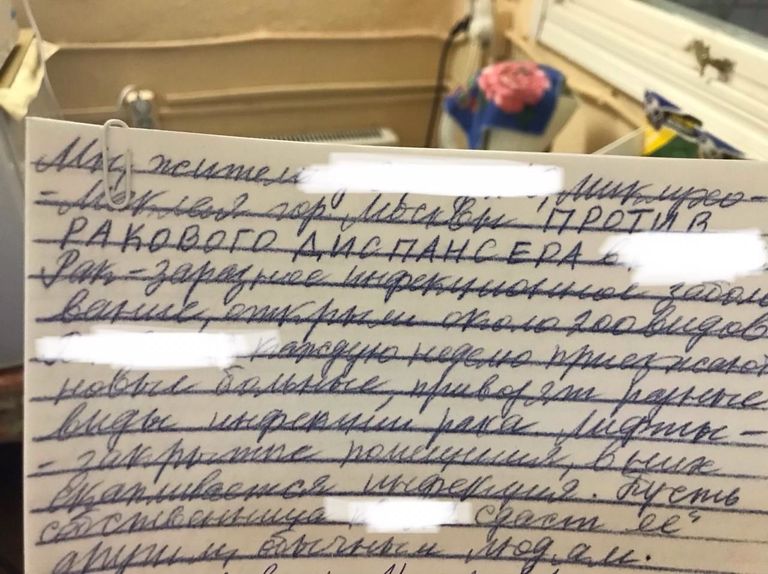 Мы, жители Миклухо-
-Маклая гор Москвы ПРОТИВ
РАКОВОГО ДИСПАНСЕРА в
Рак-заразное инфекционное забол
вание, открыли около 200 видов
каждую неделю приезжают
новые больные, привозят разные
виды инфекций рака. Лифты-
- закрытые помещения, в них
скапливается инфекция. Пусть
собственница сдаст "её"
другим, обычным людям.